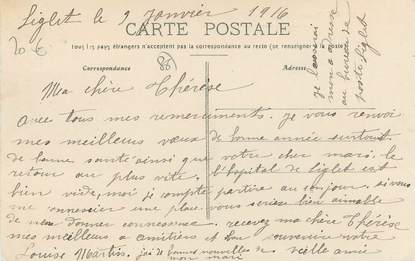 Liglet le 9 Janvier 1916
20 €
86
CARTE POSTALE
Tous les pays étrangers n'acceptent pas la correspondance au recto (se renseigner à la poste)
Correspondance
Adresse
je laisserai
mon adresse
au bureau de
poste Liglet
Ma chère Thérèse
avec tous mes remerciments. je vous renvoi
mes meilleurs vœux de bonne année surtout
de bonne santé ainsi que votre cher mari. le
retour au plus vite. l'hopital de Liglet est
bien vide, moi je compte partire au 1er jour. si vous
me une place vous seriez bien aimable
de me donner connessence. recevez ma chère Thérèse
mes meilleurs amitiers et bon souvenire votre
Louise Martin. j'ai de bonnes nouvelles de vieille amie
mon mari